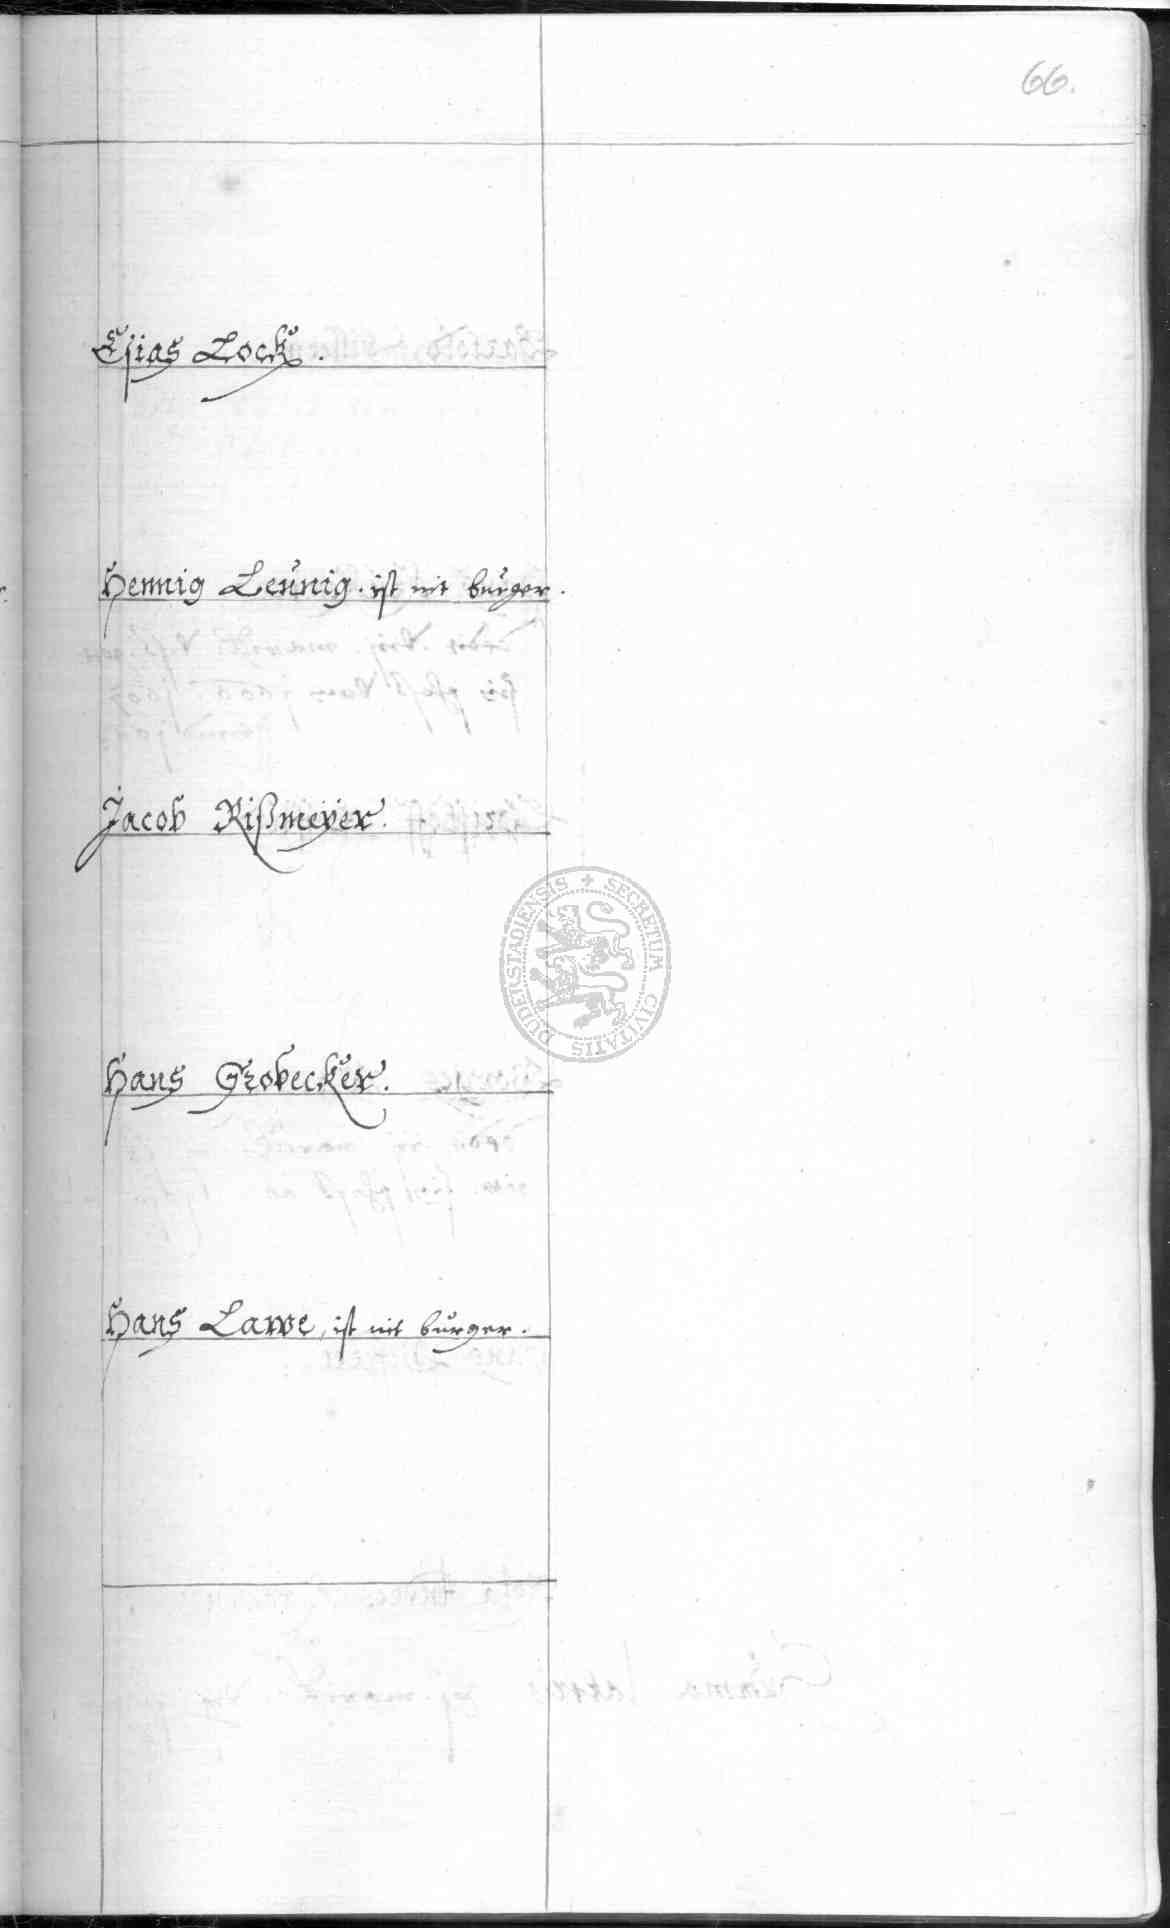 66.
Elias Lock.
Hennig Leunig. ist nit burger.
Jacob Rißmeyer.
SECRETUM CIVITATIS DUDERSTADIENSIS
Hans Grobecker.
Hans Lawe, ist nit burger.